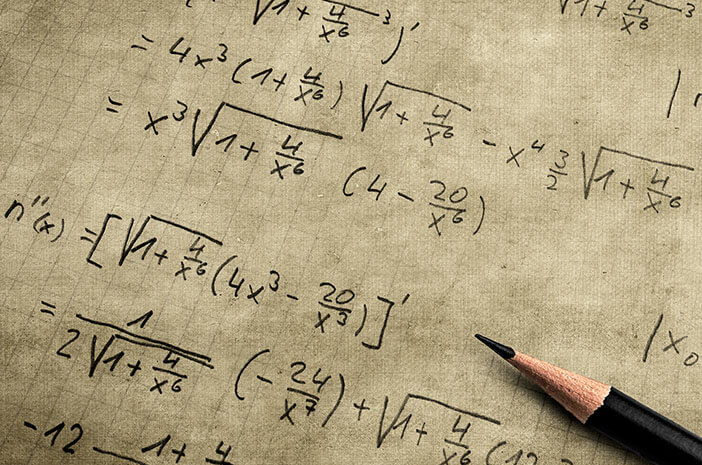 √(1 + 4/x⁶)³ )′
√(1 + 4/x⁶)³
= 4x³ (1 + 4/x⁶) √(1 + 4/x⁶) − x⁴ 3/2 √(1 + 4/x⁶)
= x³ √(1 + 4/x⁶) (4 − 20/x⁶)
n″(x) = [√(1 + 4/x⁶) (4x³ − 20/x³)]′
= 1/(2√(1 + 4/x⁶)) (−24/x⁷) + √(1 + 4/x⁶) (12
| x₀
−12 1 + 4